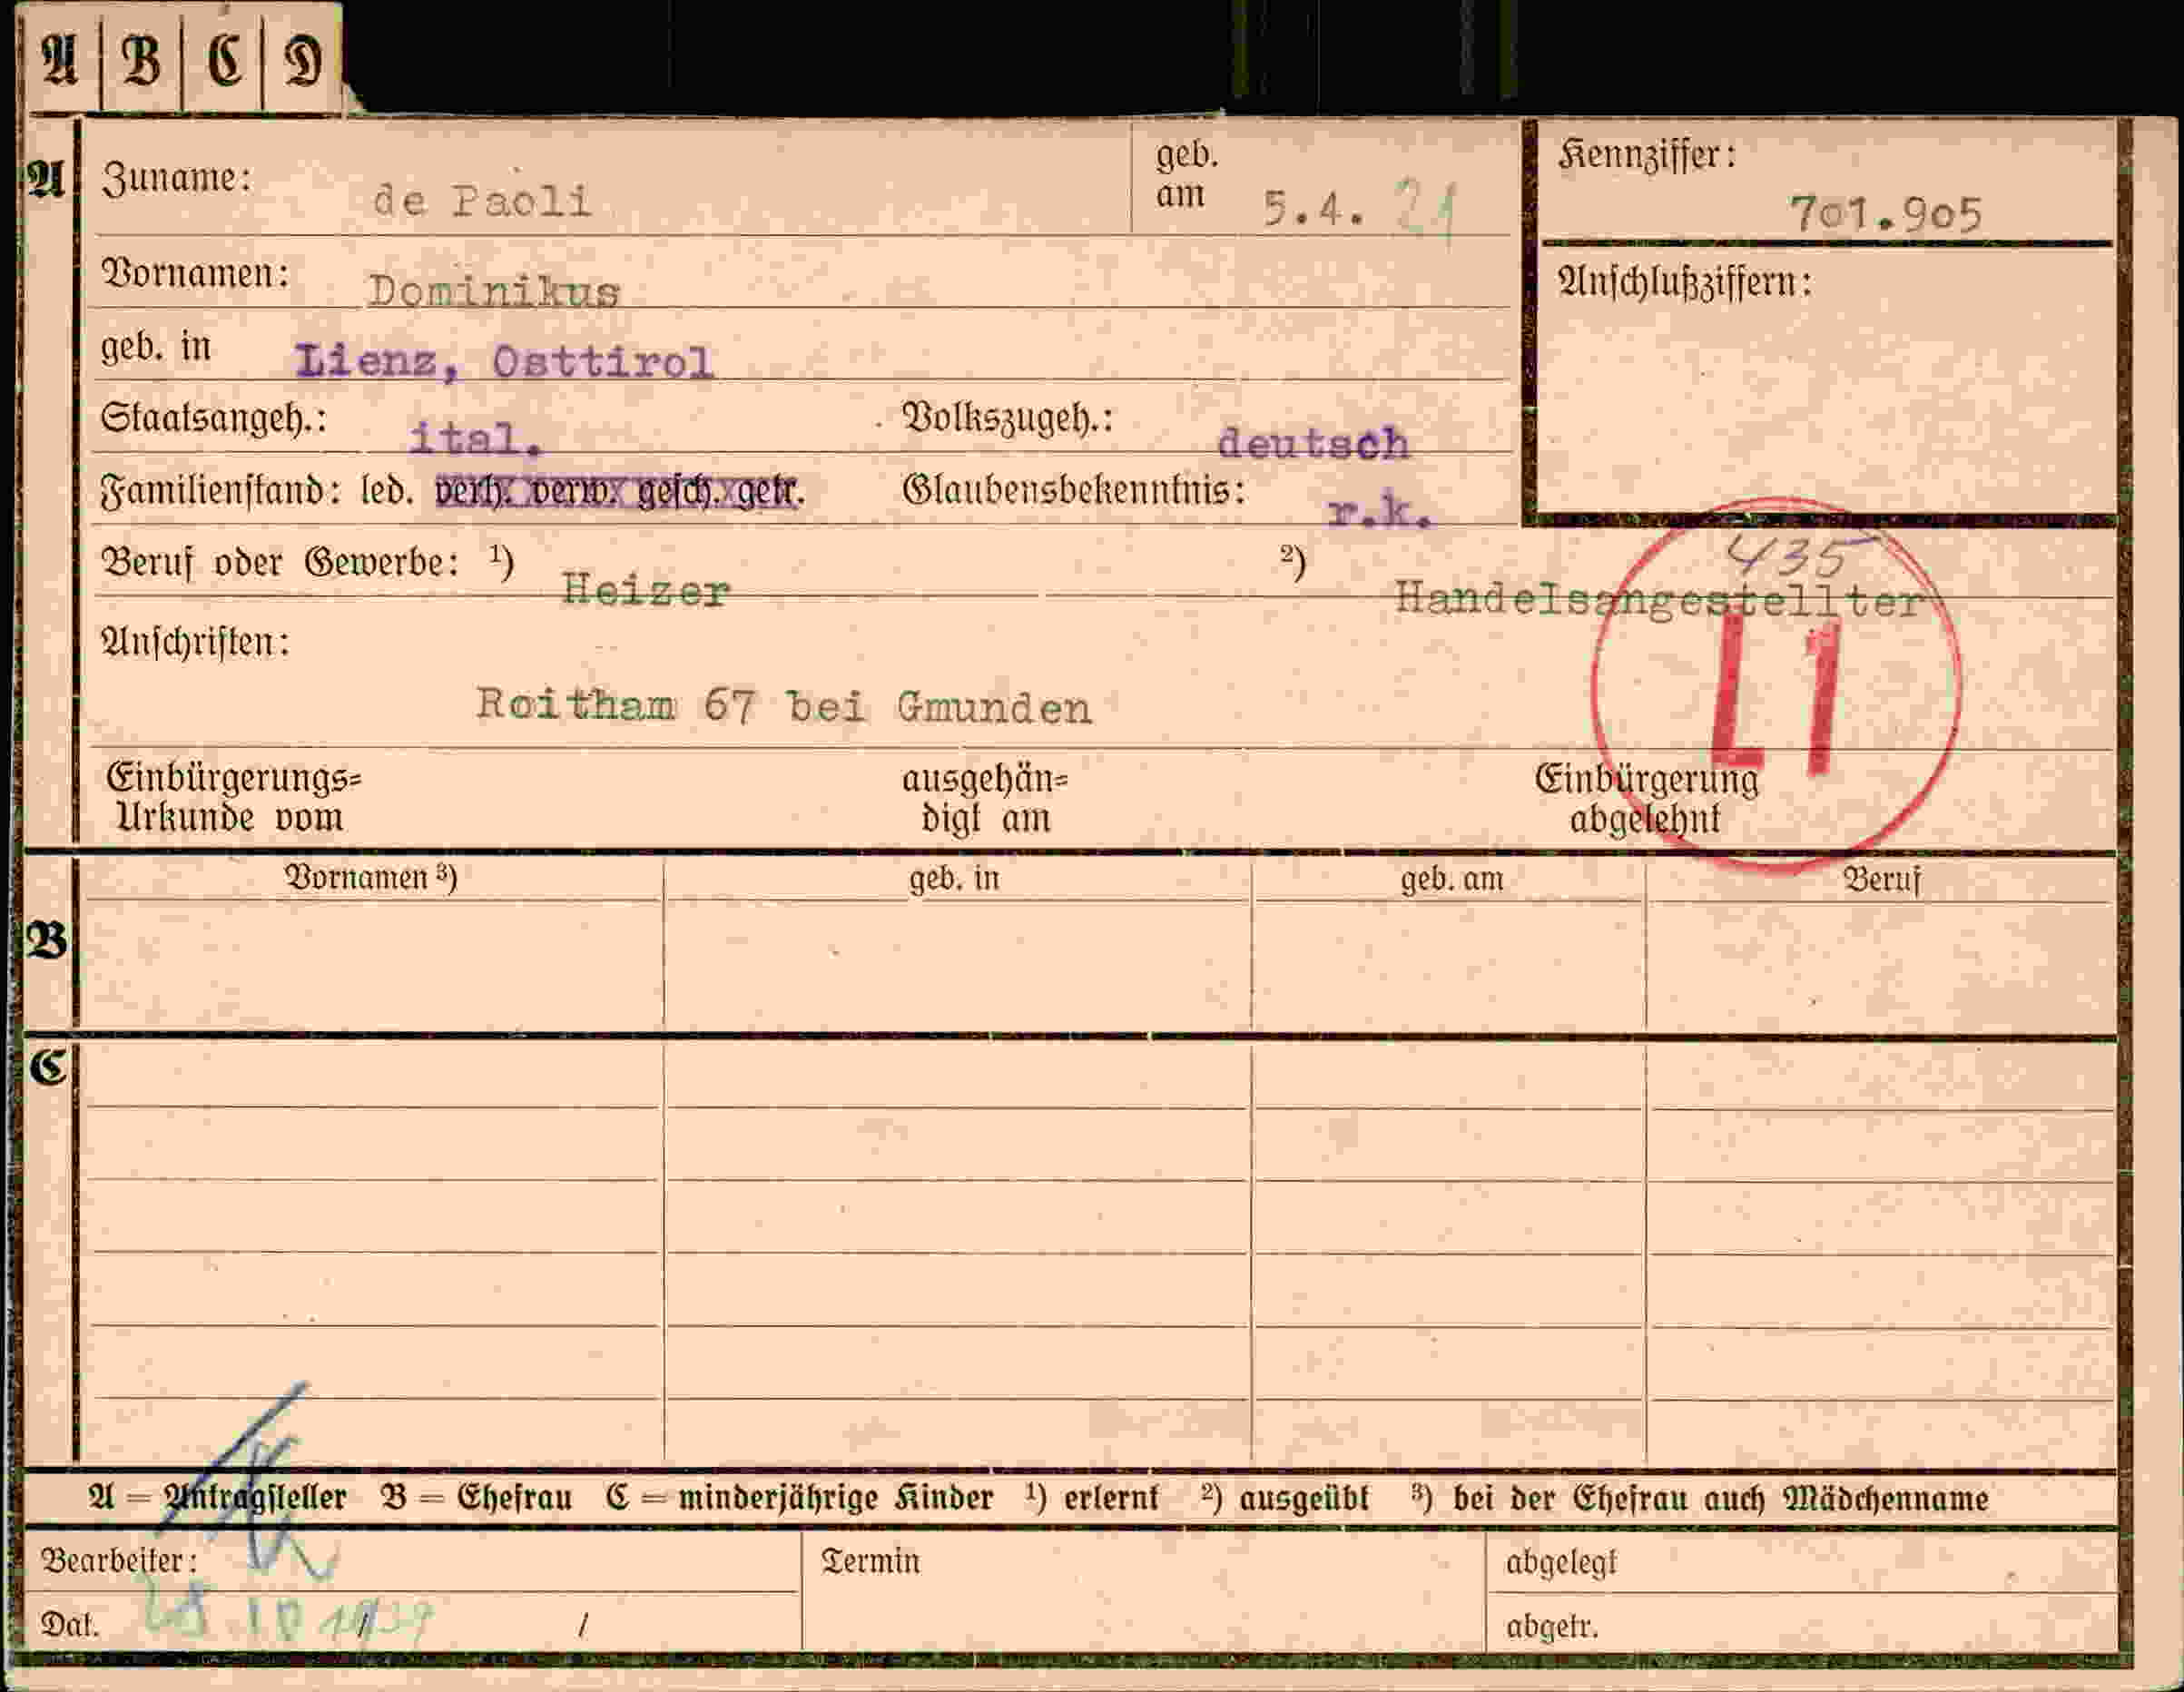 A B C D
A
Zuname: de Paoli
geb. am 5.4. 21
Kennziffer: 701.905
Vornamen: Dominikus
Anschlußziffern:
geb. in Lienz, Osttirol
Staatsangeh.: ital. Volkszugeh.: deutsch
Familienstand: led. verh. verw. gesch. getr. Glaubensbekenntnis: r.k.
435
Beruf oder Gewerbe: ¹) Heizer ²) Handelsangestellter
L1
Anschriften:
Roitham 67 bei Gmunden
Einbürgerungs= ausgehän= Einbürgerung
Urkunde vom digt am abgelehnt
Vornamen ³) geb. in geb. am Beruf
B
C
A = Antragsteller B = Ehefrau C = minderjährige Kinder ¹) erlernt ²) ausgeübt ³) bei der Ehefrau auch Mädchenname
Bearbeiter: Termin abgelegt
Dat. 28.10 1939 / / abgetr.